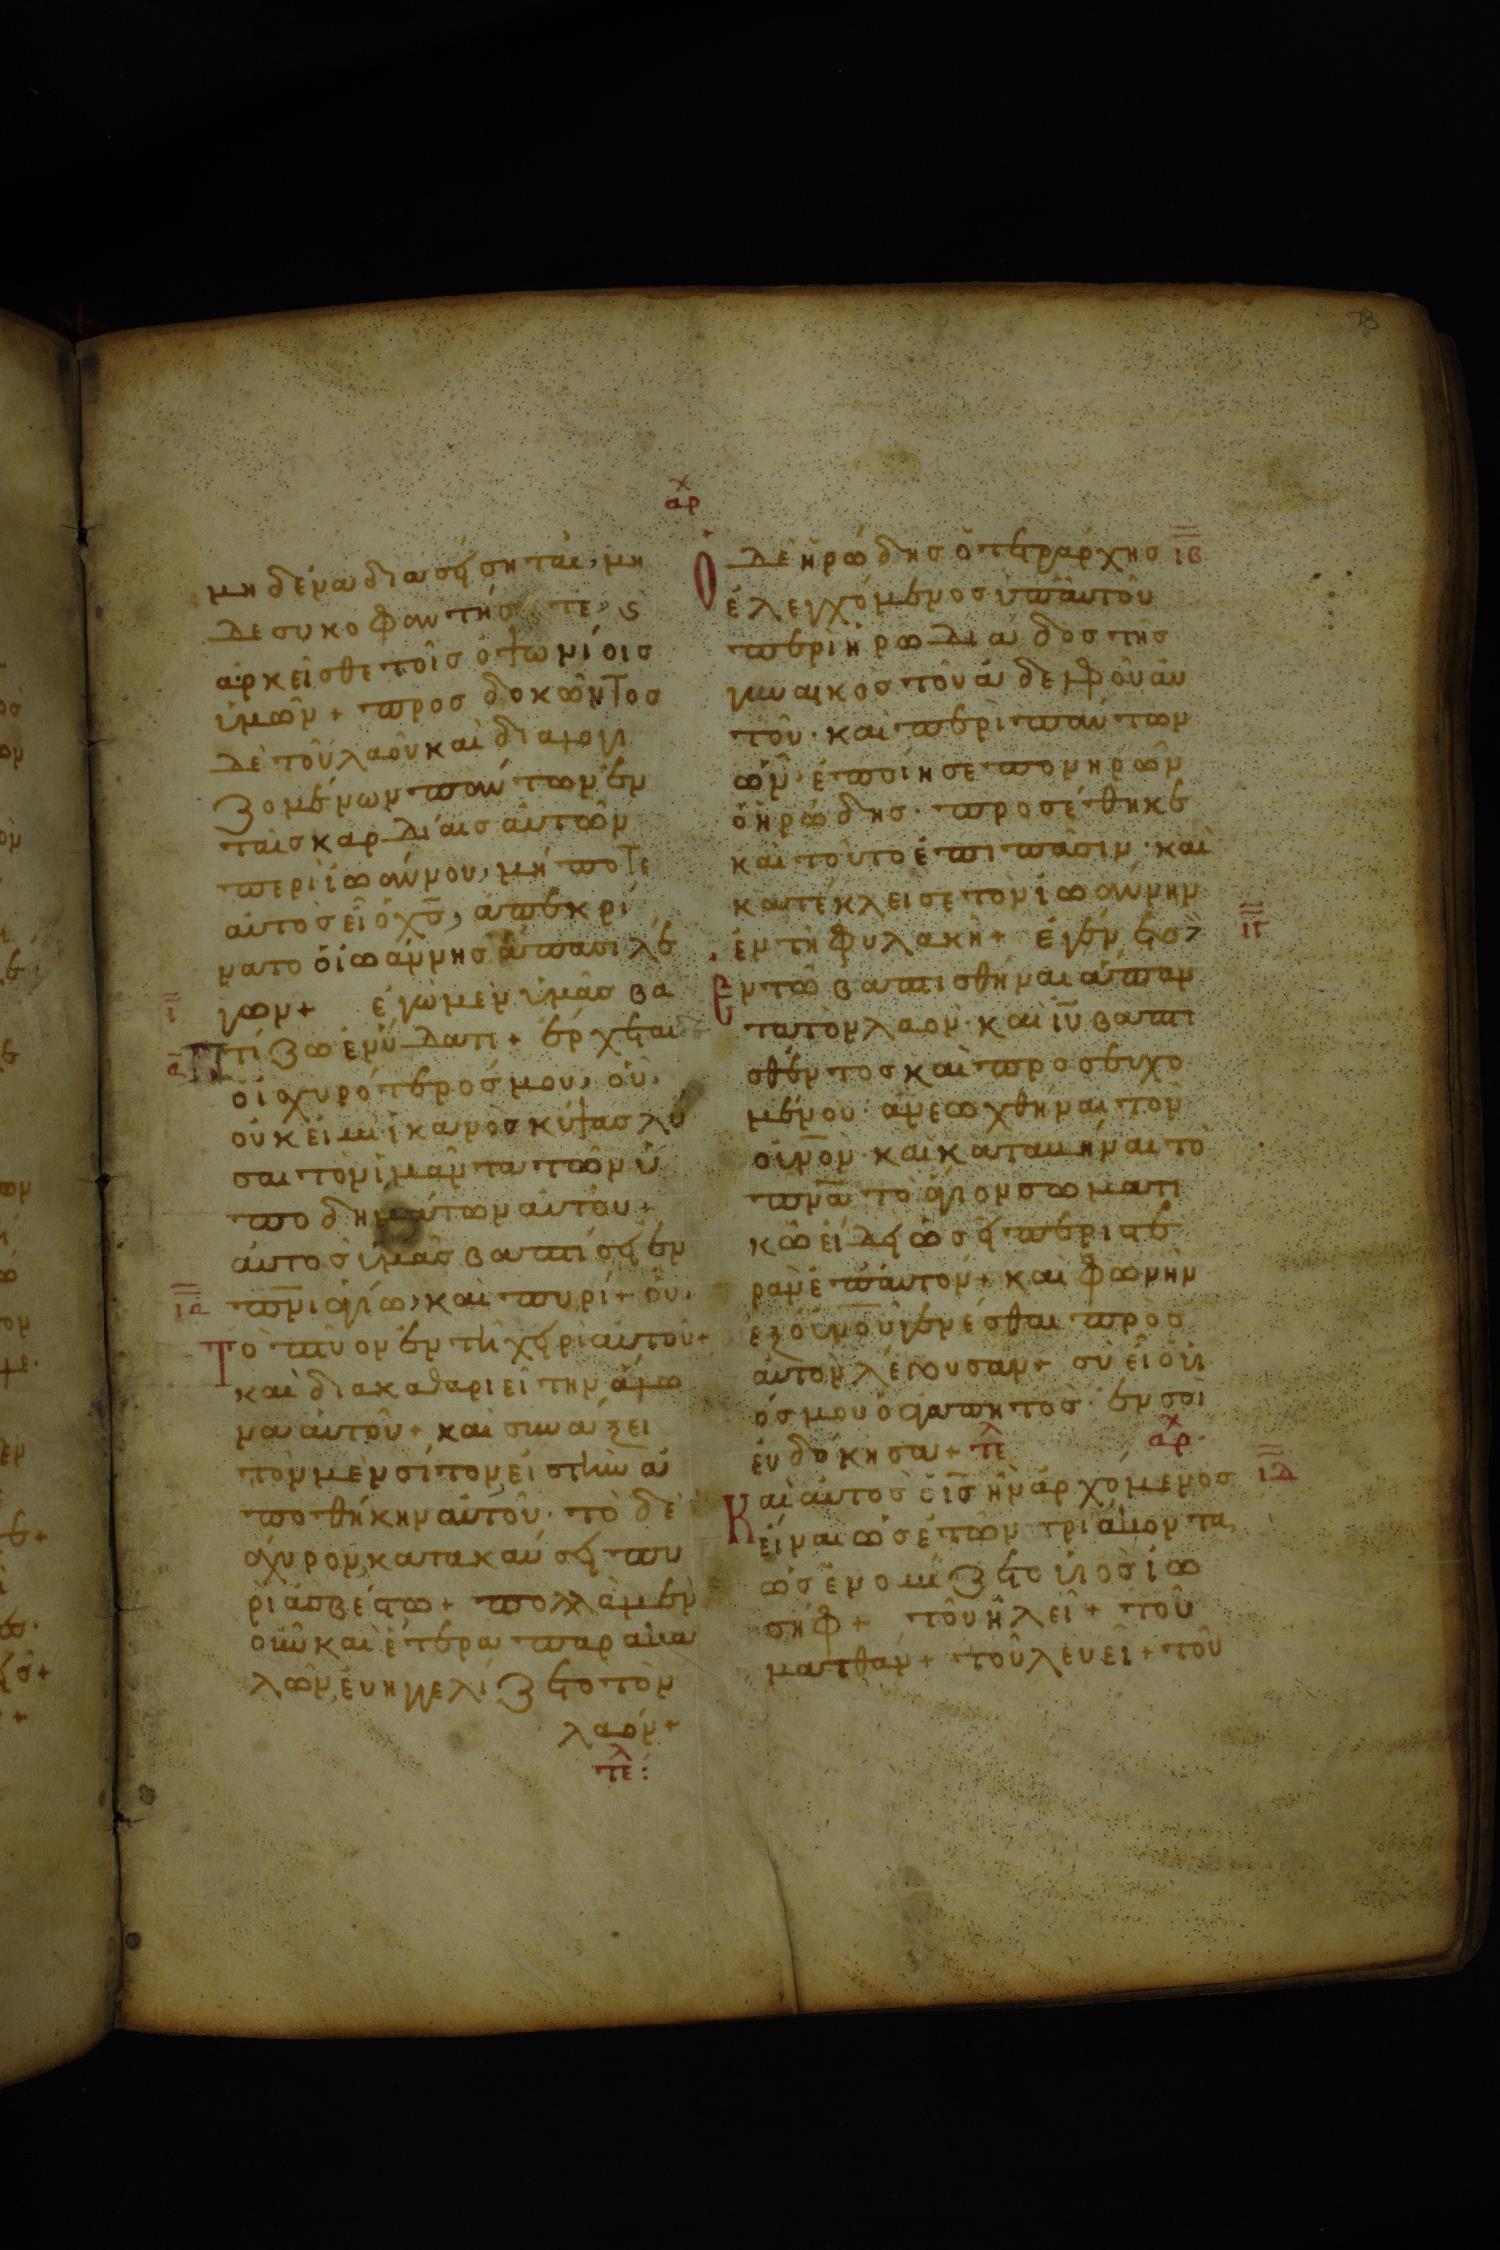 78
αρχ
μηδένα διασείσητε, μη
δὲ συκοφαντήσητε, ϛ
ἀρκεῖσθε τοῖσ ὀψωνίοισ
ὑμῶν + προσδοκῶντοσ
δὲ τοῦ λαοῦ καὶ διαλογι
ζομένων πάντων ἐν
ταῖσ καρδίαισ αὐτῶν
περὶ ἰωάννου, μήποτε
αὐτὸσ εἴη ὁ χσ̅, ἀπεκρί
νατο ὁ ἰωάννησ ἅπασι λέ
γων + ἐγὼ μὲν ὑμᾶσ βα
ι̅
πτίζω ἐν ὕδατι + ἔρχεται
α̅
ὁ ἰσχυρότεροσ μου, οὗ,
οὐκ εἰμὶ ἱκανὸσ κύψασ λῦ
σαι τὸν ἱμάντα τῶν ὑ
ποδημάτων αὐτοῦ +
αὐτὸσ ὑμᾶσ βαπτίσει ἐν
πνι̅ ἁγίω, καὶ πυρί + οὗ,
ια̅
Τὸ πτύον ἐν τῆ χειρὶ αὐτοῦ +
καὶ διακαθαριεῖ την ἅλω
να αὐτοῦ + καὶ συνάξει
τὸν μὲν σίτον εἰσ τὴν ἀ
ποθήκην αὐτοῦ· τὸ δὲ
ἄχυρον, κατακαύσει πυ
ρὶ ἀσβέστω + πολλὰ μὲν
οὖν καὶ ἕτερα παρακα
λῶν, εὐηγγελίζετο τὸν
λαόν +
τελ:
Ὁ δὲ ἡρώδησ ὁ τετράρχησ
ιβ̅
ἐλεγχόμενοσ ὑπ αὐτοῦ
περὶ ἡρωδιάδοσ τῆσ
γυναικὸσ τοῦ ἀδελφοῦ αὐ
τοῦ· καὶ περὶ πάντων
ὧν· ἐποίησε πονηρῶν
ὁ ἡρώδησ· προσέθηκε
καὶ τοῦτο ἐπὶ πᾶσιν· καὶ
κατέκλεισε τὸν ἰωάννην
ἐν τῆ φυλακῆ + ἐγένετο
ιγ̅
Ἐν τῶ βαπτισθῆναι ἅπαν
τα τὸν λαον· καὶ ιυ̅ βαπτι
σθέντοσ καὶ προσευχο
μένου· ἀνεωχθῆναι τὸν
οὐνο̅ν· καὶ καταβῆναι τὸ
πνα̅ τὸ ἅγιον σωματι
κῶ εἴδει ὡσεὶ περιστε
ρὰν ἐπ αὐτόν + καὶ φωνὴν
ἐξ οὐνο̅υ γενέσθαι πρὸσ
αὐτὸν λέγουσαν + σὺ εἶ ὁ ὑι
όσ μου ὁ ἀγαπητὸσ· ἐν σοὶ
εὐδόκησα + τελ
αρχ·
Καὶ αὐτὸσ ὁ ισ̅ ἦν ἀρχόμενοσ
ιδ̅
εἶναι ὡσ ἐτῶν τριάκοντα,
ὡσ ἐνομίζετο ὑιὸσ ἰω
σήφ + τοῦ ἡλεῖ + του
ματθάν + τοῦ λευεῖ + τοῦ